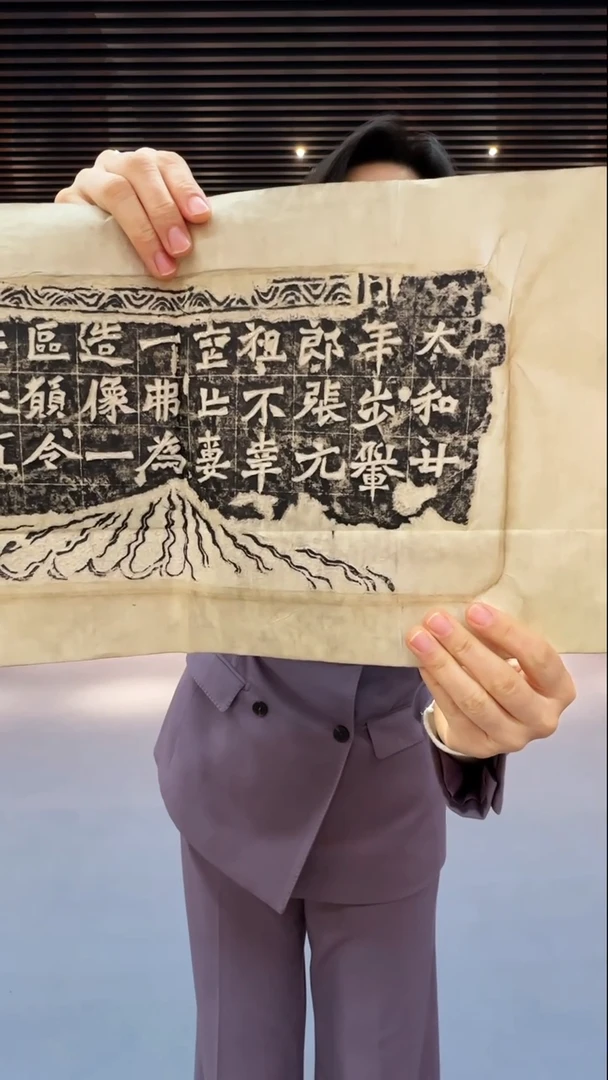 太和廿
年步轝
郎張元
祖不幸
喪亡妻
一弗為
造像一
區願令